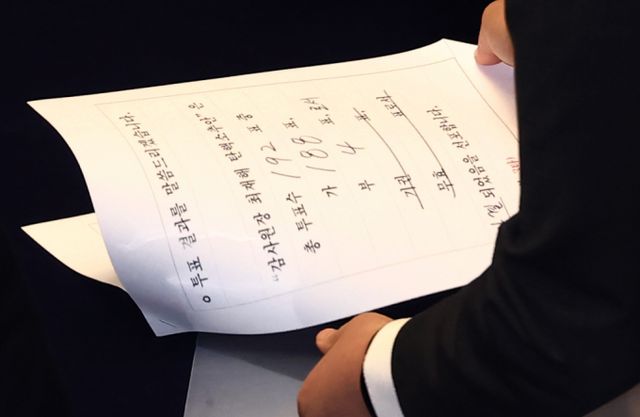 o 투표 결과를 말씀드리겠습니다.
“감사원장 최재해 탄핵소추안”은
총 투표수 192 표 중
가 188 표,
부 4 표,
기권
무효
결 되었음을 선포합니다.